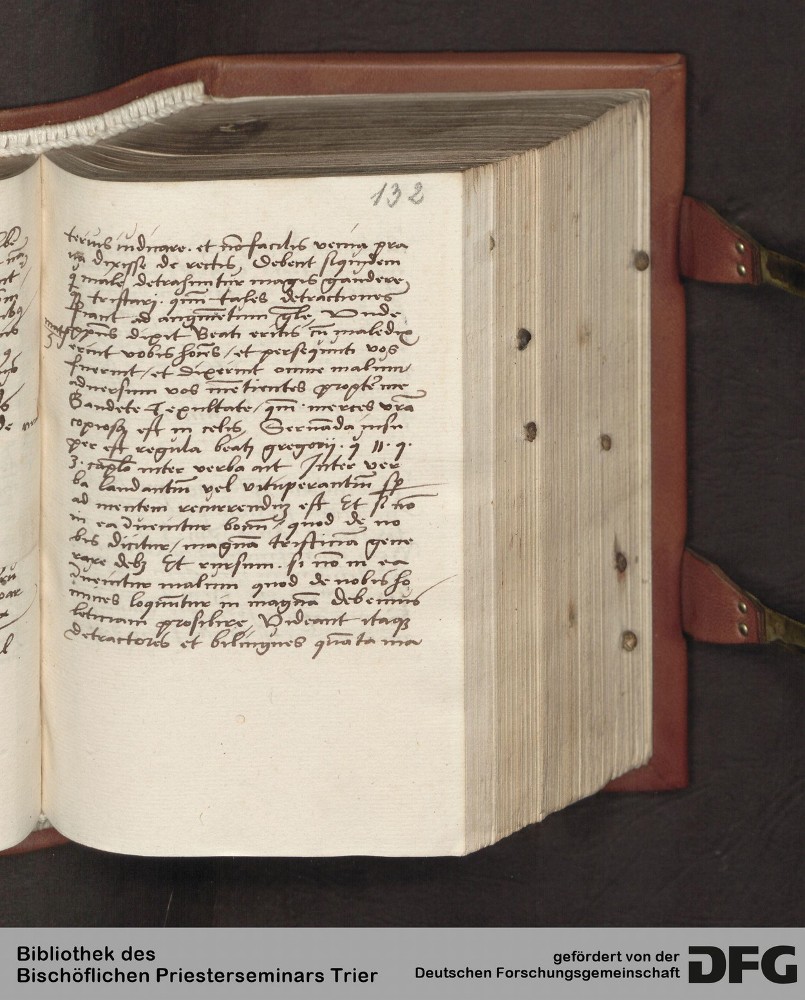 132
terius iudicare. et nõ facilis venia pra
va dixisse de rectis, Debent siquidem
q male detrahuntur magis gaudere
q̃ tristari. qm̃ tales detractiones
fiant ad augmẽtum glẽ, Unde
xpus dixit Beati eritis cũ maledix
erint vobis hoĩes / et persequuti vos
fuerint / et dixerint omne malum
adversum vos mẽtientes propter me
Gaudete et exultate / qm̃ merces vrã
copiosa est in celis, Servãda insu
per est regula beati gregorij. q 11. q.
3. caplõ inter verba ait Inter ver
ba laudantiũ vel vituperantiũ sp
ad mentem recurrendũ est Et si nõ
in ea Invenitur bonũ / quod de no
bis dicitur / magnã tristiciã gene
rare debz Et rursum. si nõ in ea
Invenitur malum quod de nobis ho
mines loquũtur in magnã debemus
leticiam prosilire, Videant itaq
detractores et bilingues quãta ma
Bibliothek des
Bischöflichen Priesterseminars Trier
gefördert von der
Deutschen Forschungsgemeinschaft
DFG